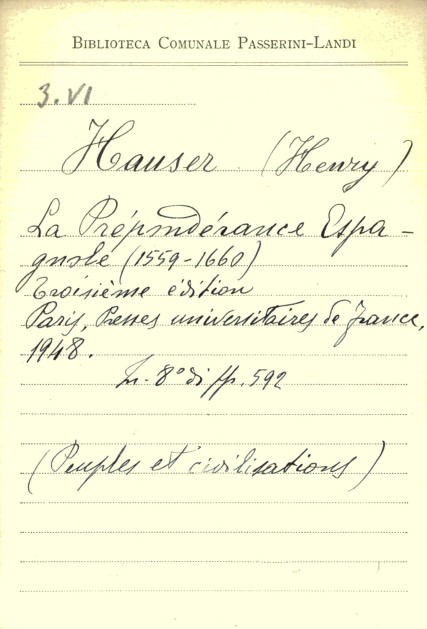 BIBLIOTECA COMUNALE PASSERINI-LANDI
3.VI
Hauser (Henry)
La Prépondérance Espa-
gnole (1559-1660)
Troisième édition
Paris, Presses universitaires de France,
1948.
In-8° di pp. 592
(Peuples et civilisations)